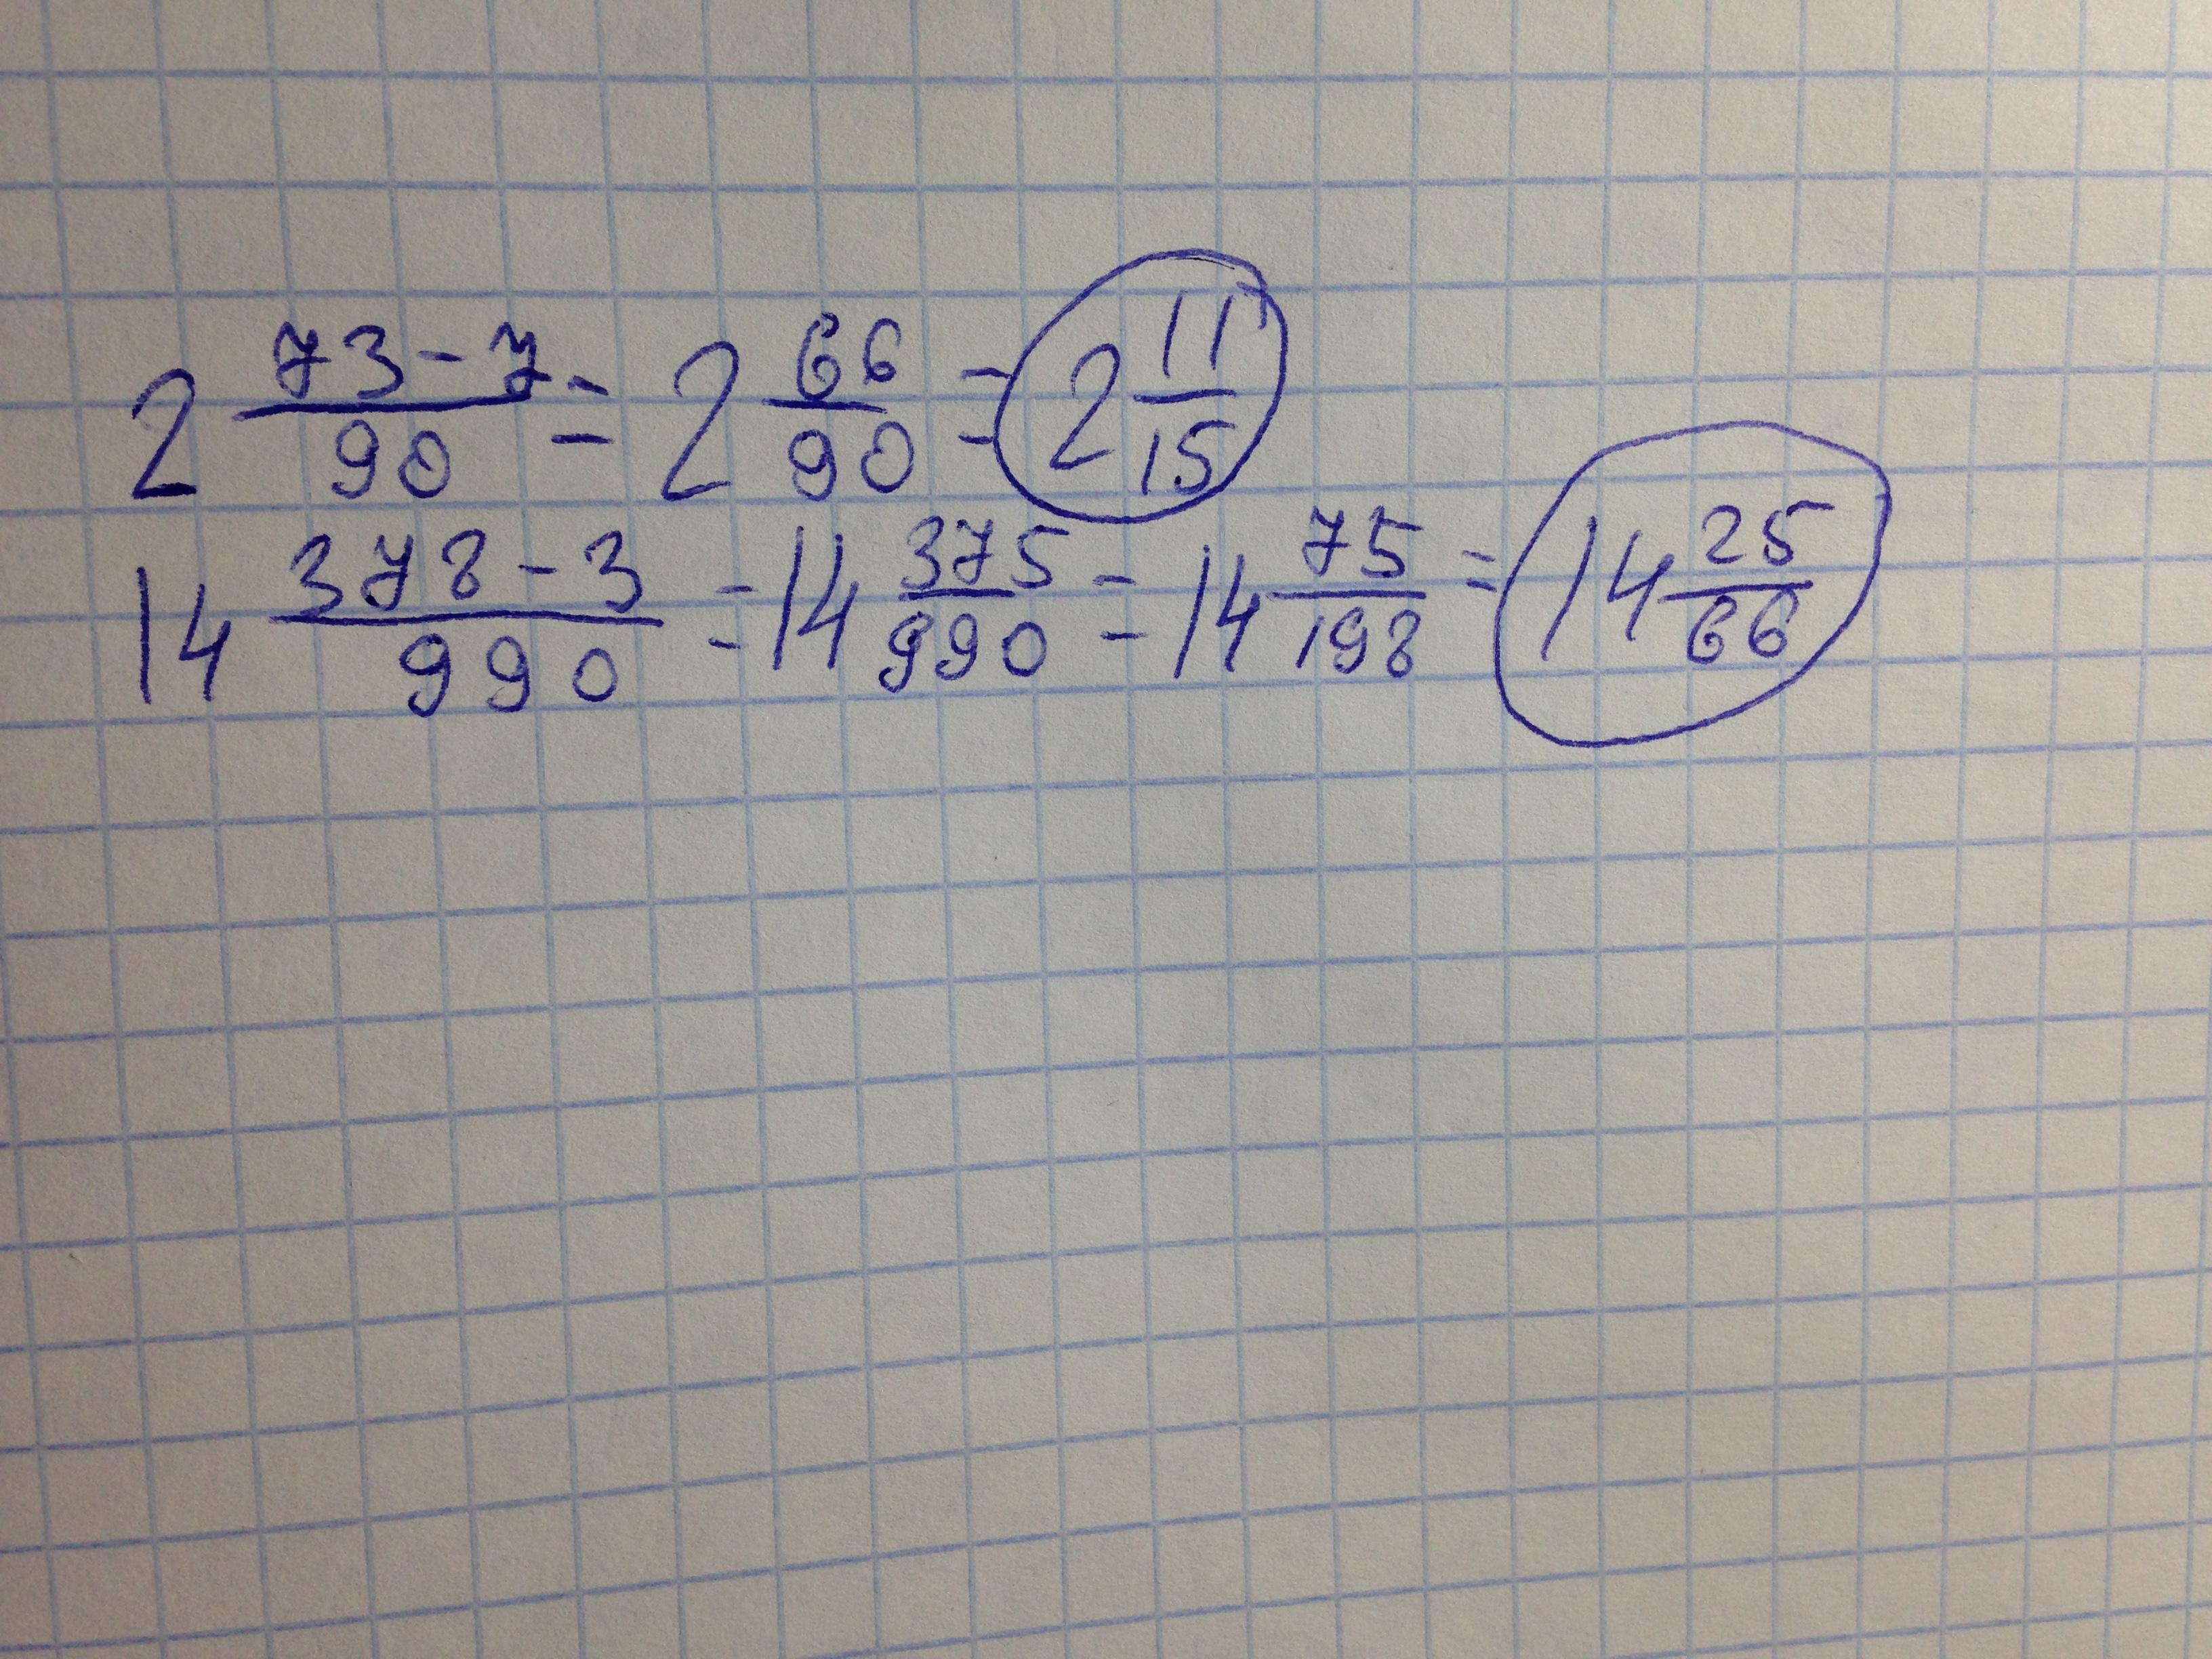 2 73-7/90 = 2 66/90 = 2 11/15
14 378-3/990 = 14 375/990 = 14 75/198 = 14 25/66